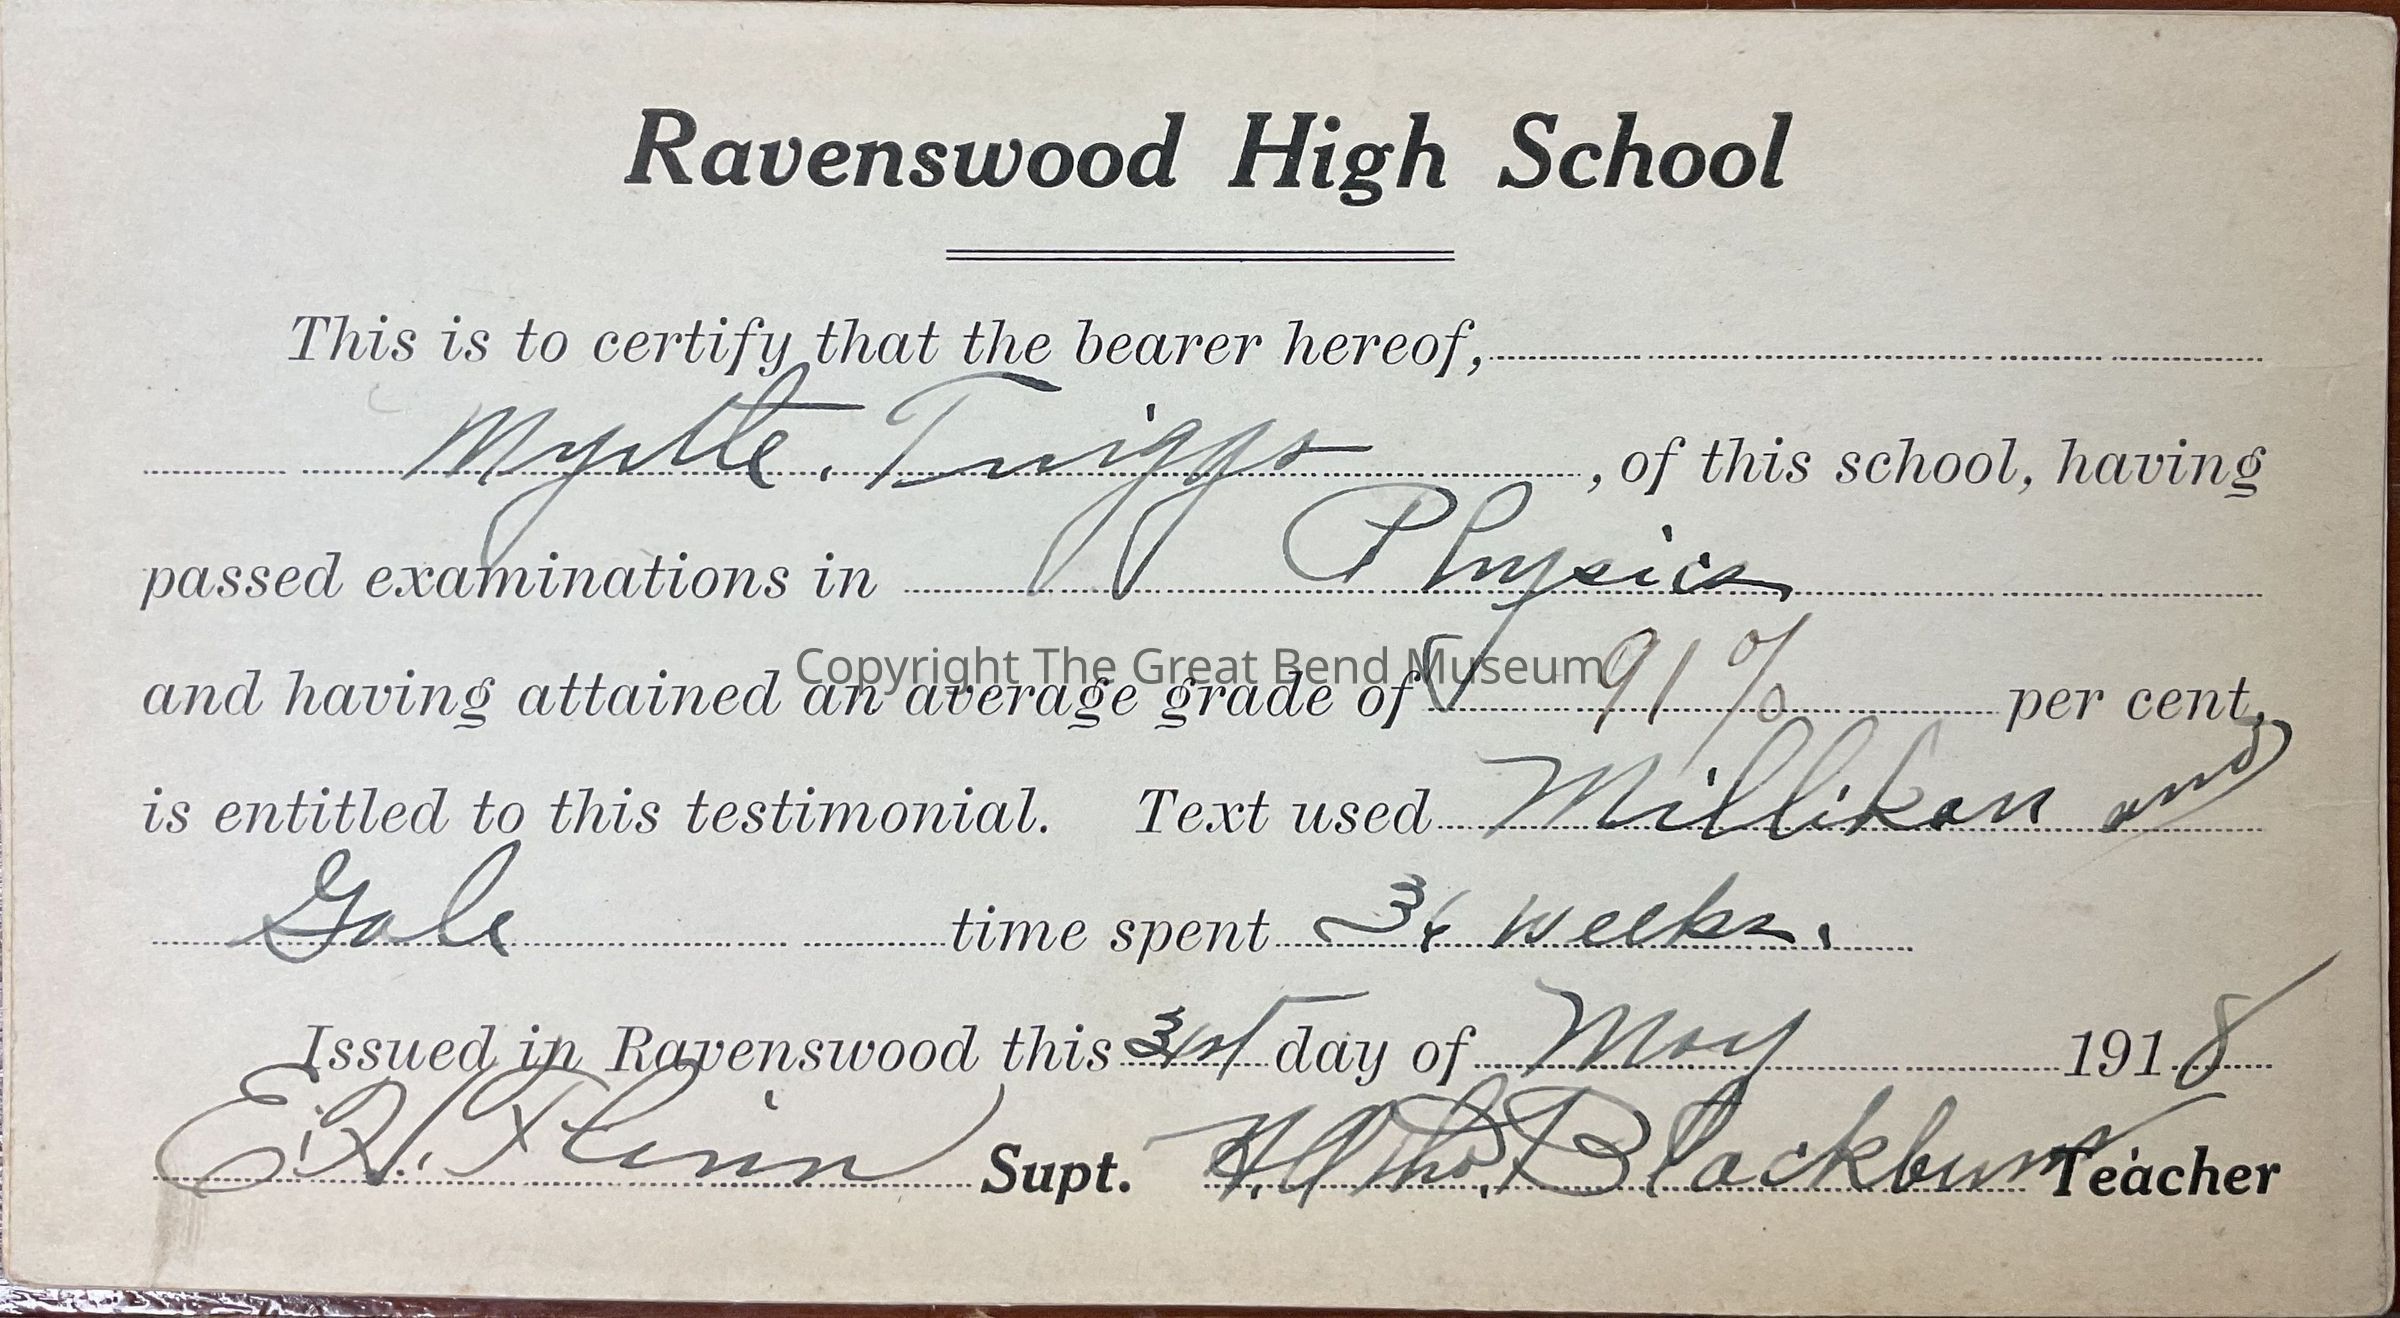 Ravenswood High School
This is to certify that the bearer hereof,
Myrtle. Twiggs, of this school, having
passed examinations in Physics
Copyright The Great Bend Museum
and having attained an average grade of 91% per cent,
is entitled to this testimonial. Text used Millikan and
Gale time spent weeks.
Issued in Ravenswood this 31st day of May 1918
Supt. Blackburn Teacher